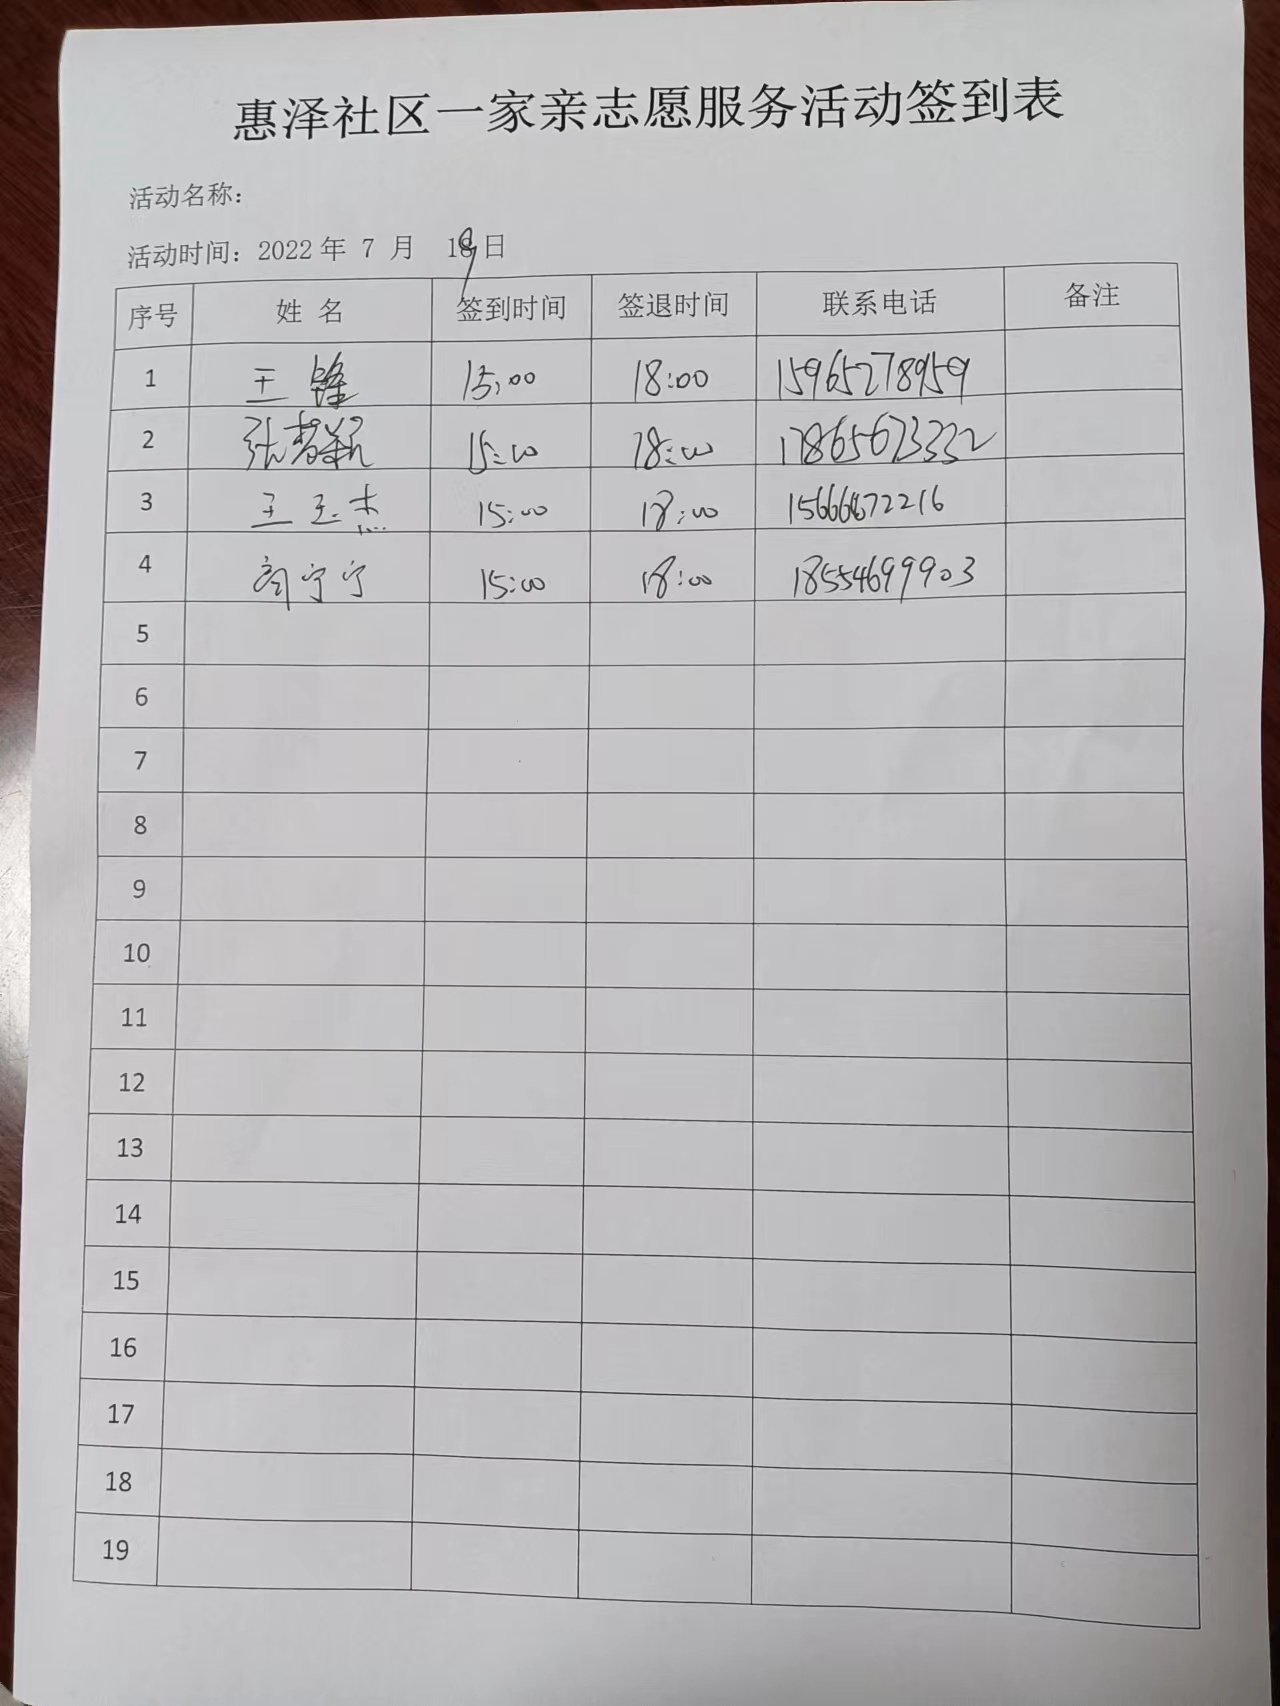 惠泽社区一家亲志愿服务活动签到表
活动名称：
活动时间：2022 年 7 月 19 日
序号 姓 名 签到时间 签退时间 联系电话 备注
1 王锋 15:00 18:00 15965278959
2 张 15:00 18:00 17865673332
3 王玉杰 15:00 18:00 15666872216
4 宁宁 15:00 18:00 18554699903
5
6
7
8
9
10
11
12
13
14
15
16
17
18
19